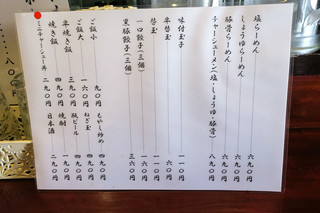 塩らーめん 六九〇円
しょうゆらーめん 六九〇円
豚骨らーめん 六九〇円
チャーシューメン(塩・しょうゆ・豚骨) 八九〇円
味付玉子 一一〇円
半替玉 一一〇円
替玉 一六〇円
一口餃子(三個)
黒豚餃子(三個) 三六〇円
ご飯小 九〇円
ご飯大 一六〇円
半焼き飯 四九〇円
焼き飯
ミニチャーシュー丼 二九〇円
もやし炒め 四九〇円
ねぎ玉
瓶ビール
焼酎
日本酒 二九〇円